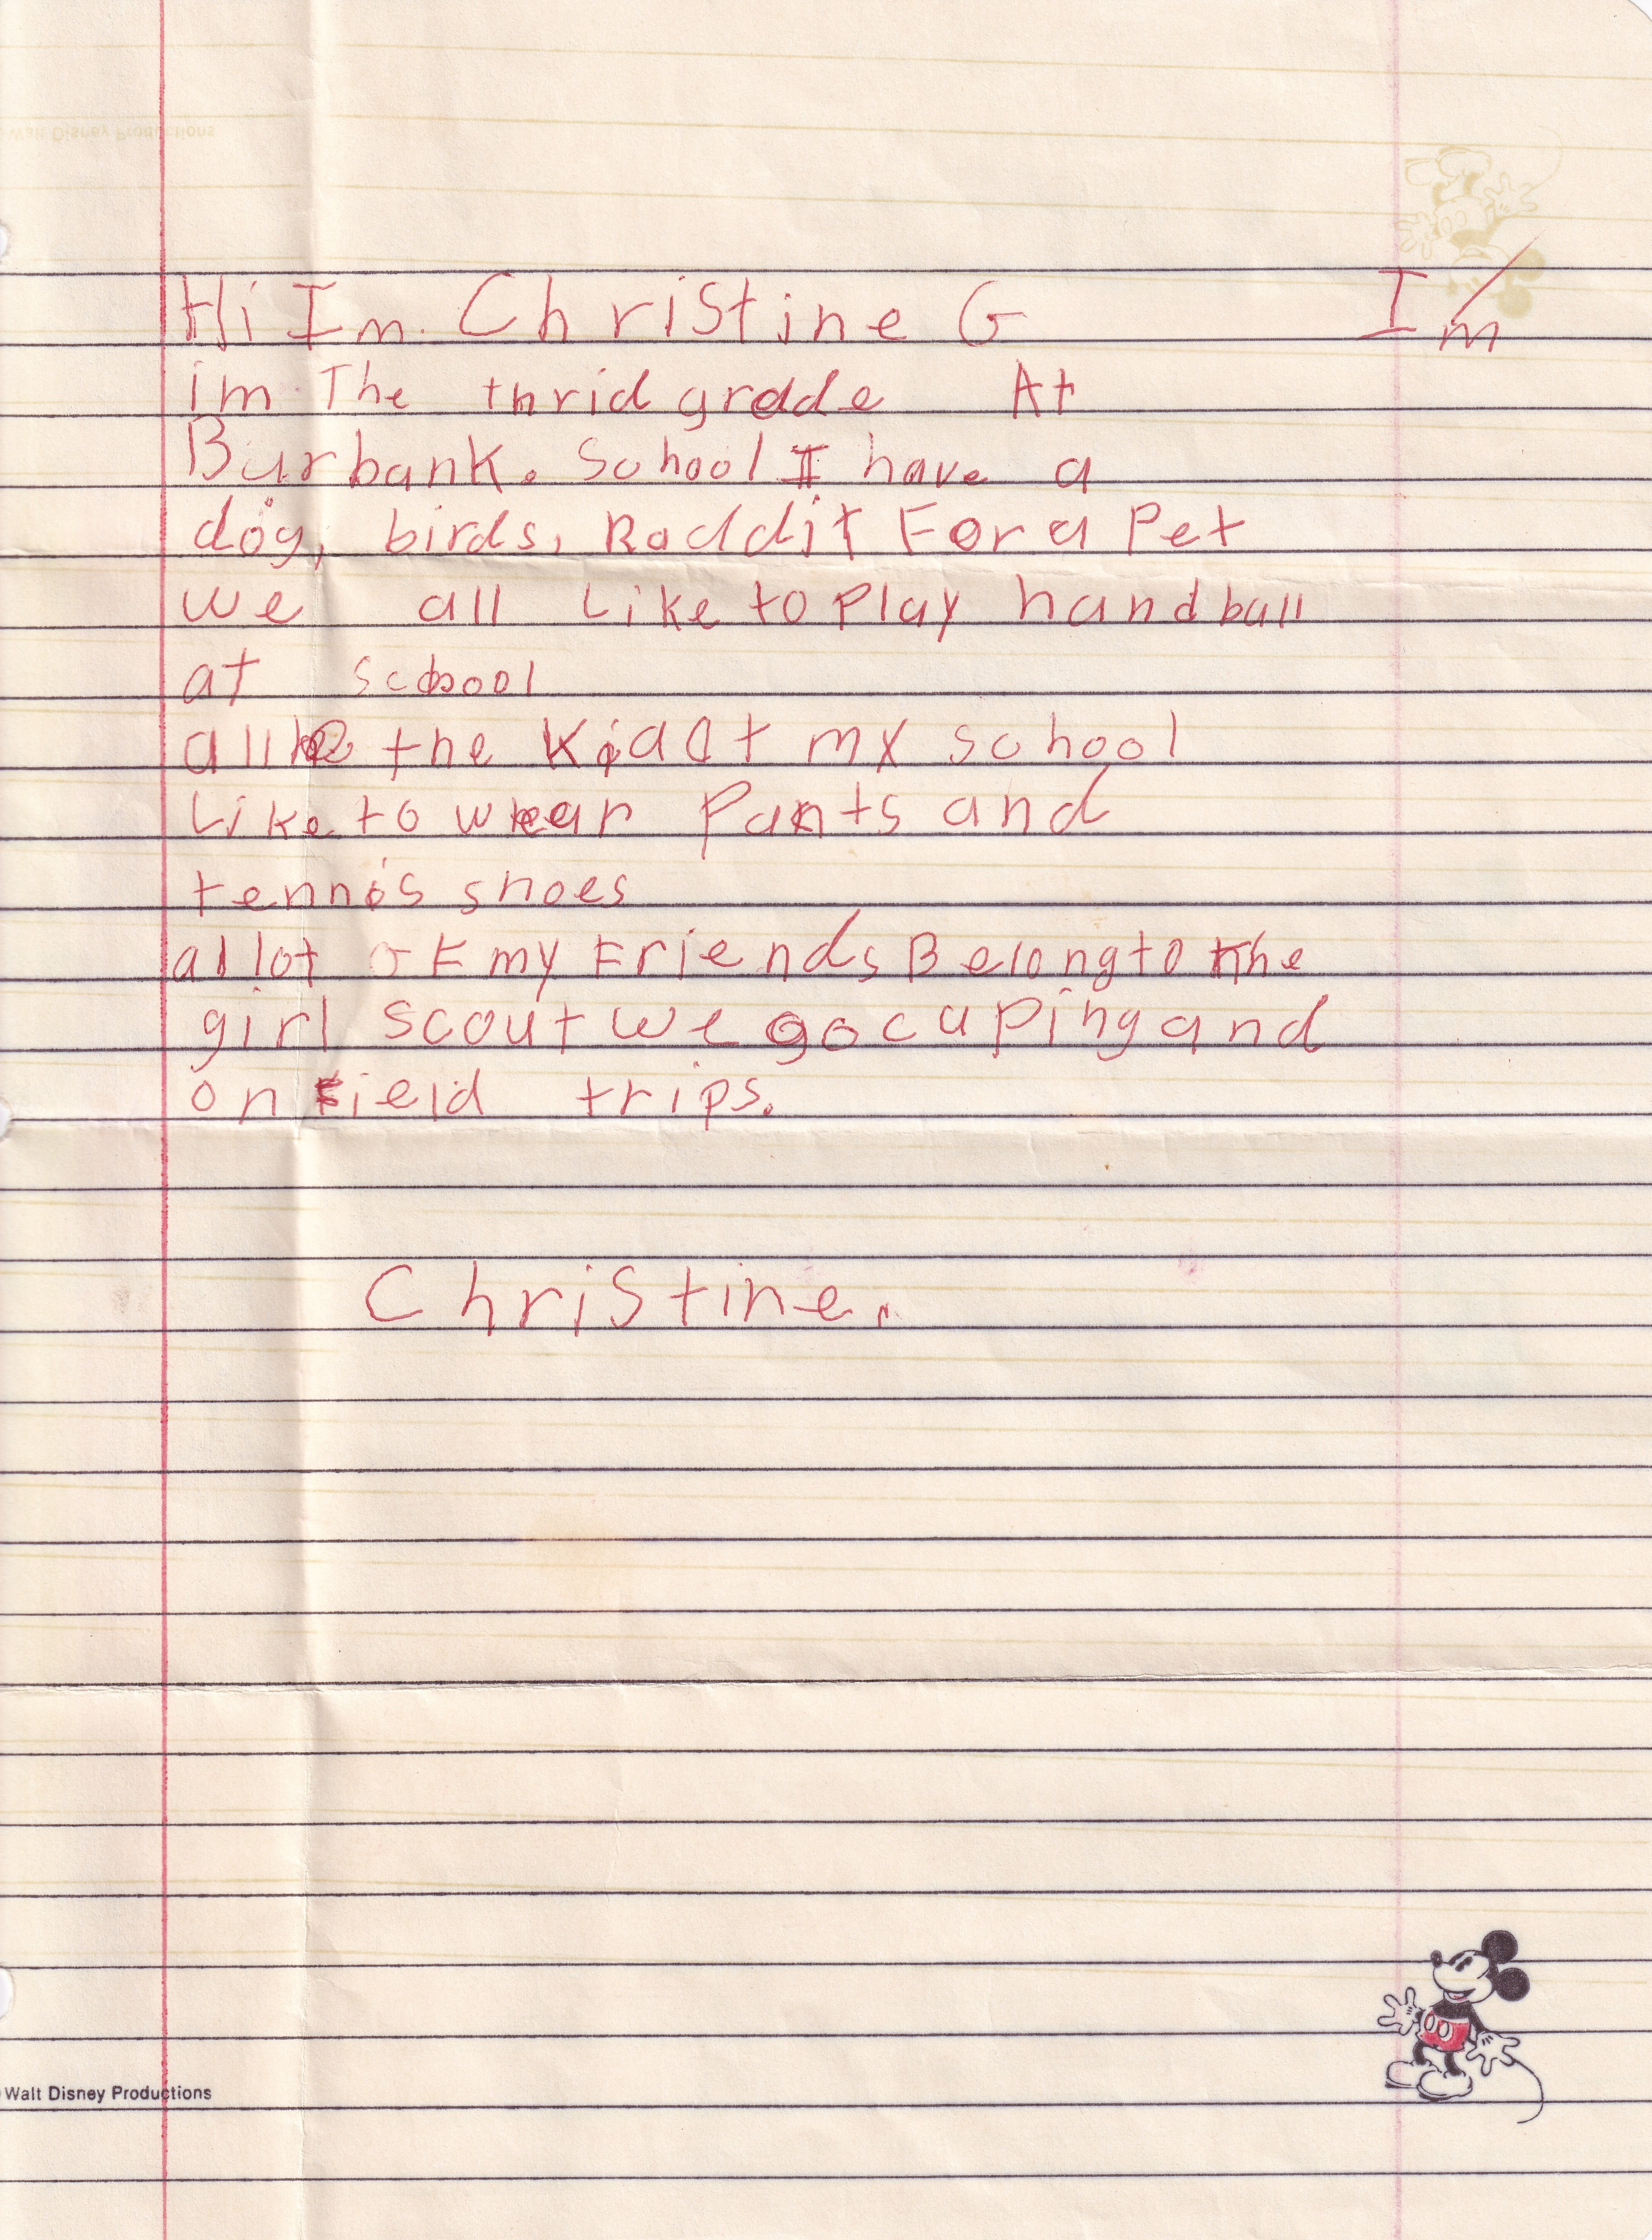 Hi Im. Christine G I'm
im. The thrid grade At
Burbank. School I have a
dog, birds, Raddit For a Pet
we all Like to Play handball
at school
all the Kid at my school
Like to wear Pants and
tennis shoes
al lot oF my Friends Belong to the
girl scout we go caping and
on Field trips.
Christine.
Walt Disney Productions